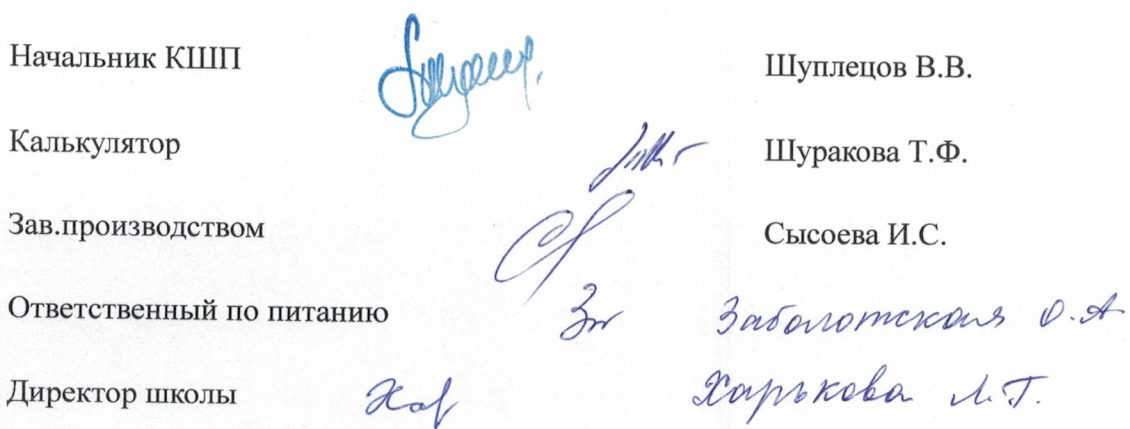 Начальник КШП Шуплецов В.В.
Калькулятор Шуракова Т.Ф.
Зав.производством Сысоева И.С.
Ответственный по питанию Заболотская О.А
Директор школы Харькова Л.Г.